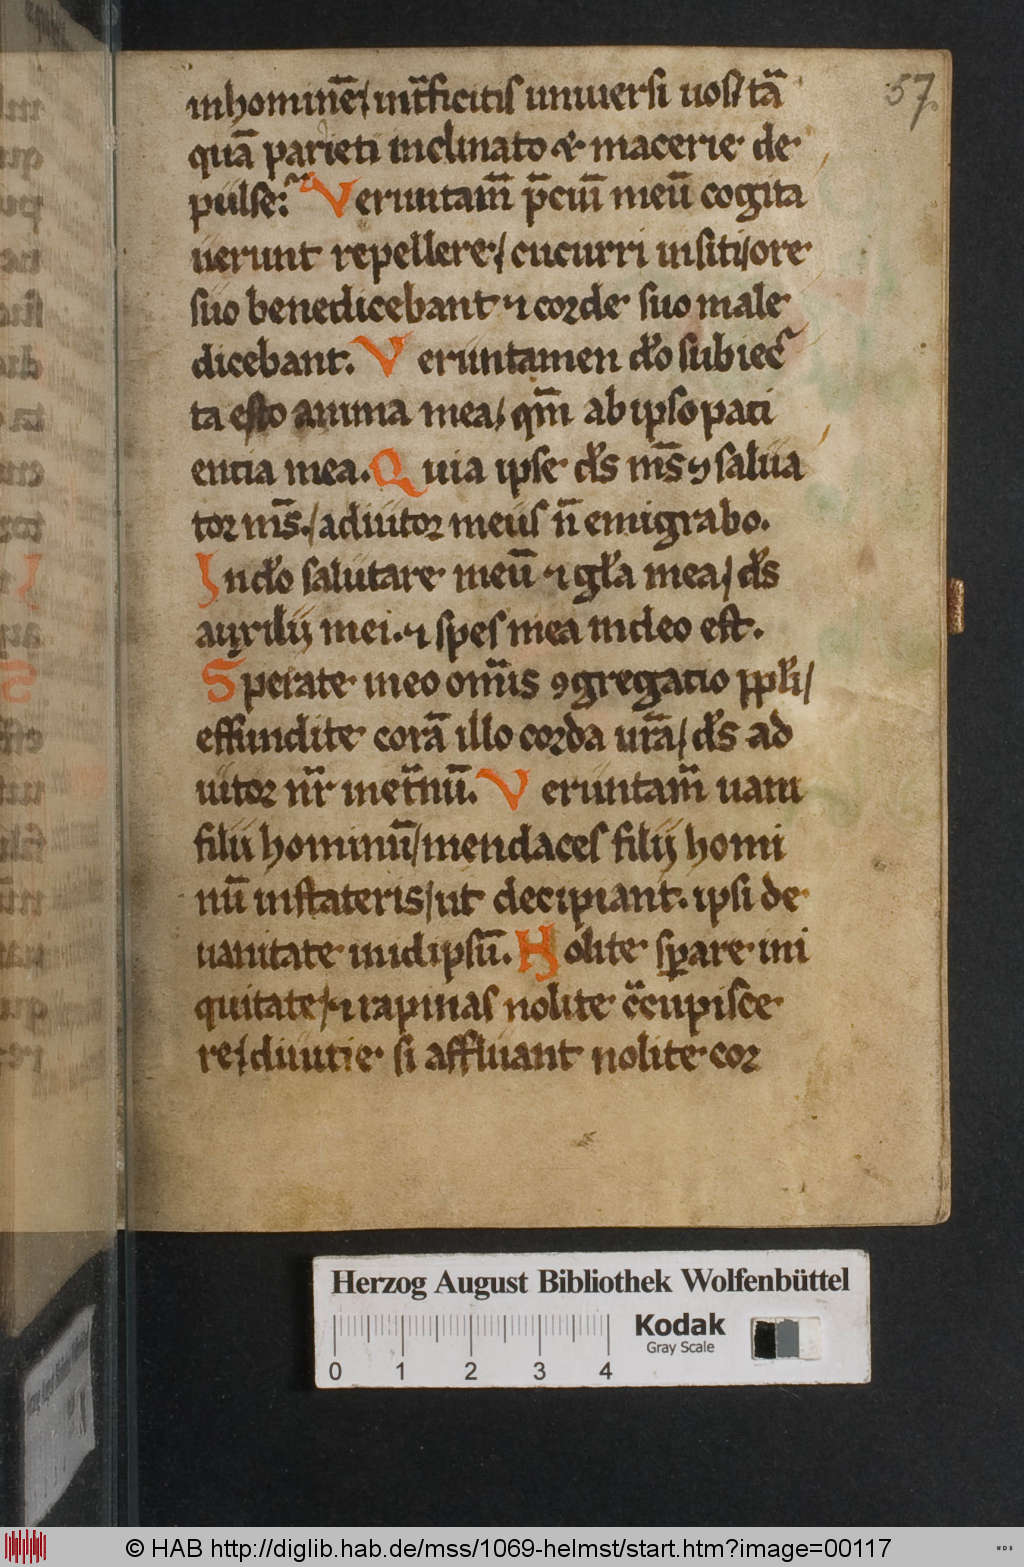 57.
inhominē/ int̄ficitis uniuersi uos/ tā
quā parieti inclinato & macerie de
pulse: Veruntam̄ p̄ciū meū cogita
uerunt repellere/ cucurri insiti/ ore
suo benedicebant ⁊ corde suo male
dicebant. Veruntamen dō subiec
ta esto anima mea/ qm̄ ab ipso pati
entia mea. Quia ipse ds̄ ms̄ ⁊ salua
tor ms̄./ adiutor meus n̄ emigrabo.
In dō salutare meū ⁊ glā mea/ ds̄
auxilij mei. ⁊ spes mea indeo est.
Sperate ineo om̄is ꝯgregatio ppli/
effundite corā illo corda urā/ ds̄ ad
iutor nr̄ inet̄nū. Veruntam̄ uani
filii hominū/ mendaces filij homi
nū instateris/ ut decipiant. ipsi de
uanitate inidipsū. Nolite sꝑare ini
quitate/ ⁊ rapinas nolite c̄cupisce
re/ diuitie si affluant nolite cor
Herzog August Bibliothek Wolfenbüttel
Kodak
Gray Scale
0 1 2 3 4
© HAB http://diglib.hab.de/mss/1069-helmst/start.htm?image=00117